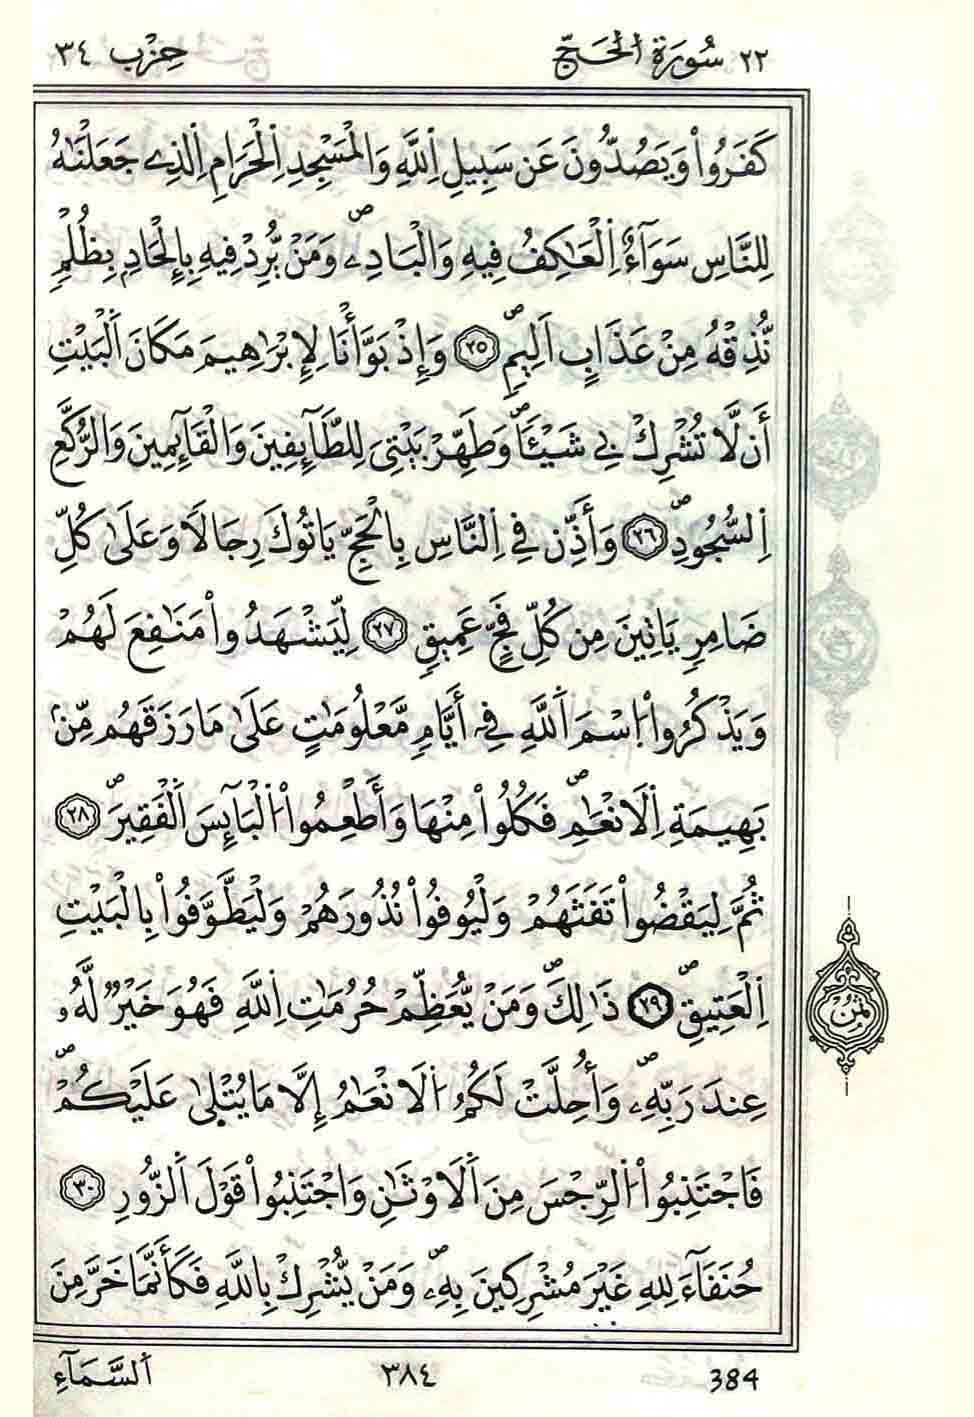 ٢٢ سُورَةُ الْحَجّ حِزْب ٣٤
كَفَرُواْ وَيَصُدُّونَ عَن سَبِيلِ اِ۬للَّهِ وَالْمَسْجِدِ اِ۬لْحَرَامِ اِ۬لذِے جَعَلْنَٰهُ
لِلنَّاسِ سَوَآءٌ اِ۬لْعَٰكِفُ فِيهِ وَالْبَادِۦۖ وَمَنْ يُّرِدْ فِيهِ بِإِلْحَادِۢ بِظُلْمٖ
نُّذِقْهُ مِنْ عَذَابٍ اَلِيمٖۖ ٢٥ وَإِذْ بَوَّأْنَا لِإِبْرَٰهِيمَ مَكَانَ اَ۬لْبَيْتِ
أَن لَّا تُشْرِكْ بِے شَيْـٔاٗۖ وَطَهِّرْ بَيْتِيَ لِلطَّآئِفِينَ وَالْقَآئِمِينَ وَالرُّكَّعِ
اِ۬لسُّجُودِۖ ٢٦ وَأَذِّن فِے اِ۬لنَّاسِ بِالْحَجِّ يَاتُوكَ رِجَالاٗ وَعَلَىٰ كُلِّ
ضَامِرٖ يَاتِينَ مِن كُلِّ فَجٍّ عَمِيقٖ ٢٧ لِّيَشْهَدُواْ مَنَٰفِعَ لَهُمْ
وَيَذْكُرُواْ اُ۪سْمَ اَ۬للَّهِ فِےٓ أَيَّامٖ مَّعْلُومَٰتٍ عَلَىٰ مَا رَزَقَهُم مِّنۢ
بَهِيمَةِ اِ۬لَانْعَٰمِۖ فَكُلُواْ مِنْهَا وَأَطْعِمُواْ اُ۬لْبَآئِسَ اَ۬لْفَقِيرَۖ ٢٨
ثُمَّ لِيَقْضُواْ تَفَثَهُمْ وَلْيُوفُواْ نُذُورَهُمْ وَلْيَطَّوَّفُواْ بِالْبَيْتِ
اِ۬لْعَتِيقِۖ ٢٩ ذَٰلِكَۖ وَمَنْ يُّعَظِّمْ حُرُمَٰتِ اِ۬للَّهِ فَهُوَ خَيْرٞ لَّهُۥ
ثُمُن
عِندَ رَبِّهِۦۖ وَأُحِلَّتْ لَكُمُ اُ۬لَانْعَٰمُ إِلَّا مَا يُتْلَىٰ عَلَيْكُمْۖ
فَاجْتَنِبُواْ اُ۬لرِّجْسَ مِنَ اَ۬لَاوْثَٰنِ وَاجْتَنِبُواْ قَوْلَ اَ۬لزُّورِ ٣٠
حُنَفَآءَ لِلهِ غَيْرَ مُشْرِكِينَ بِهِۦۖ وَمَنْ يُّشْرِكْ بِاللَّهِ فَكَأَنَّمَا خَرَّ مِنَ
384 ٣٨٤ اَ۬لسَّمَآءِ